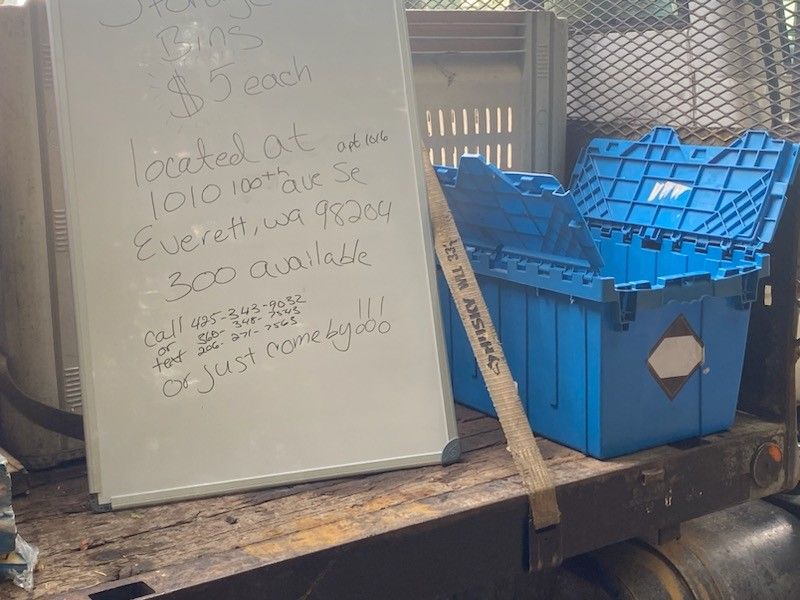 Storage
Bins
$5 each
located at apt 1016
1010 100th ave Se
Everett, wa 98204
300 available
call 425-343-9032
or 360-348-7543
text 206-271-7563
or just come by!!!
WLL 333